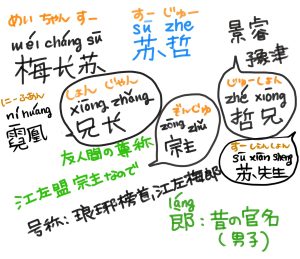 めい ちゃん すー
méi cháng sū
梅长苏
すー じゅー
sū zhe
苏哲
景睿
豫津
にー ふあん
ní huáng
霓凰
しょん じゃん
xiōng zhǎng
兄长
ぞんじゅ
zōng zhǔ
宗主
じゅーしょん
zhé xiōng
哲兄
すーしぇんしょん
sū xiān sheng
苏先生
友人間の尊称
江左盟 宗主なので
号称：琅琊榜首，江左梅郎
láng
郎：昔の官名
（男子）